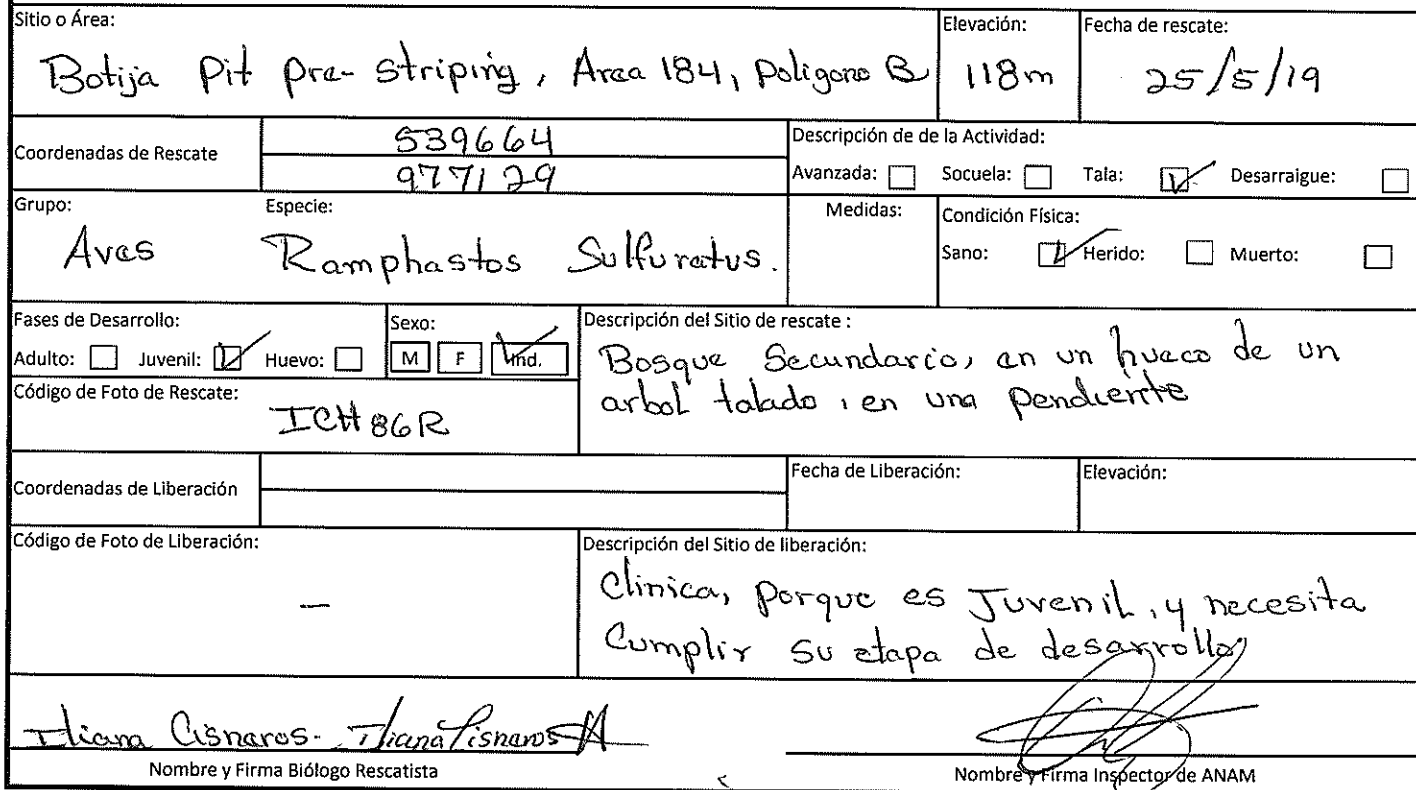 Sitio o Área:
Botija Pit pre-striping, Area 184, Poligono B
Elevación:
118m
Fecha de rescate:
25/5/19
Coordenadas de Rescate
539664
977129
Descripción de de la Actividad:
Avanzada: Socuela: Tala: Desarraigue:
Grupo:
Aves
Especie:
Ramphastos Sulfuratus.
Medidas:
Condición Física:
Sano: Herido: Muerto:
Fases de Desarrollo:
Adulto: Juvenil: Huevo:
Sexo:
M F Ind.
Descripción del Sitio de rescate :
Bosque Secundario, en un hueco de un
arbol talado, en una pendiente
Código de Foto de Rescate:
ICH86R
Coordenadas de Liberación
Fecha de Liberación:
Elevación:
Código de Foto de Liberación:
—
Descripción del Sitio de liberación:
Clinica, porque es Juvenil, y necesita
Cumplir su etapa de desarrollo
Iliana Cisneros- Iliana Cisneros
Nombre y Firma Biólogo Rescatista
Nombre y Firma Inspector de ANAM